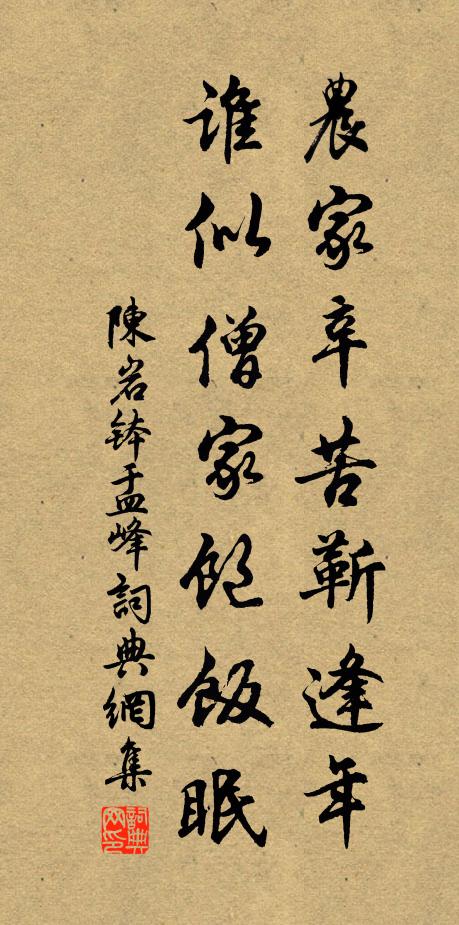 農家辛苦蘄逢年
誰似僧家飽飯眠
陳岩鉢盂峰詞典網集
詞典网印